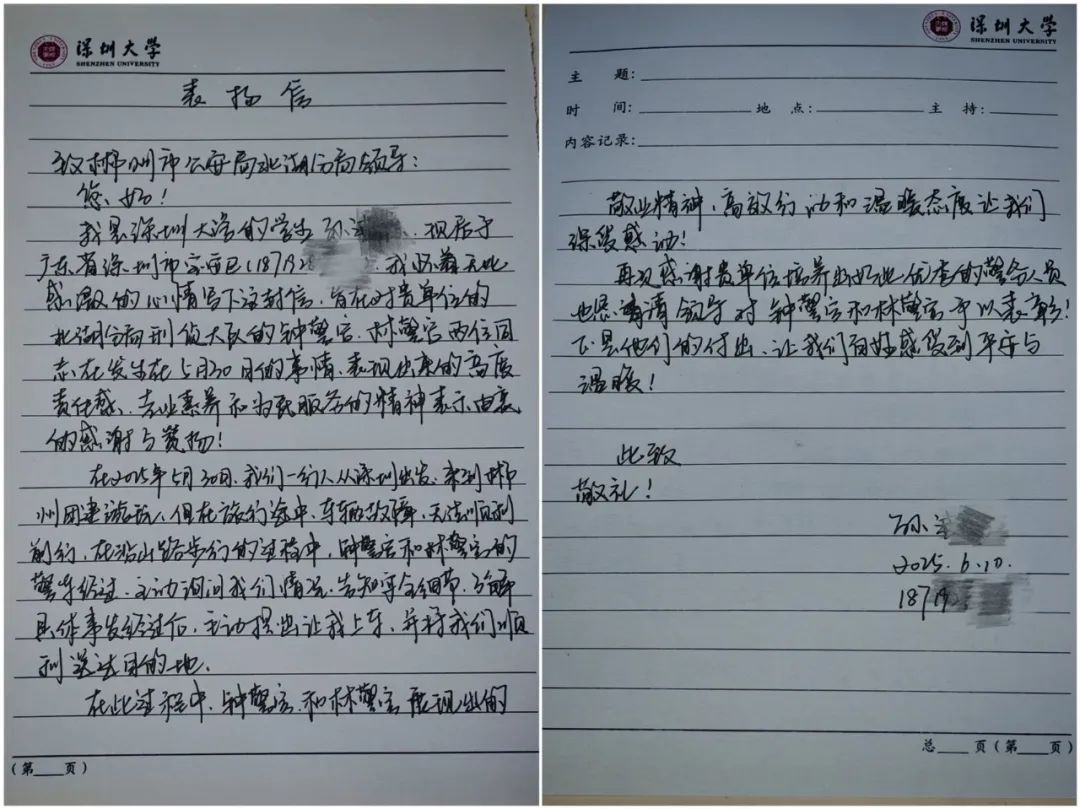 深圳大学
SHENZHEN UNIVERSITY
表扬信
致郴州市公安局北湖分局领导:
您好!
我是深圳大学的学生孙 现居于
广东省深圳市宝安区(18719 我怀着无比
感激的心情写下这封信,旨在对贵单位的
北湖分局刑侦大队的钟警官、林警官两位同
志在发生在5月30日的事情,表现出来的高度
责任感、专业素养和为民服务的精神表示由衷
的感谢与赞扬!
在2025年5月30日,我们一行人从深圳出发,来到郴
州团建游玩,但在旅行途中,车辆故障,无法顺利
前行,在沿山路步行的过程中,钟警官和林警官的
警车经过,主动询问我们情况,告知安全细节,了解
具体事发经过后,主动提出让我上车,并将我们顺
利送达目的地.
在此过程中,钟警官和林警官展现出的
(第 页)
深圳大学
SHENZHEN UNIVERSITY
主 题:
时 间: 地 点: 主 持:
内容记录:
敬业精神、高效行动和温暖态度让我们
深受感动!
再次感谢贵单位培养出如此优秀的警务人员
也恳请领导对钟警官和林警官予以表彰!
正是他们的付出,让我们百姓感受到平安与
温暖!
此致
敬礼!
孙
2025.6.10.
18719
总 页(第 页)